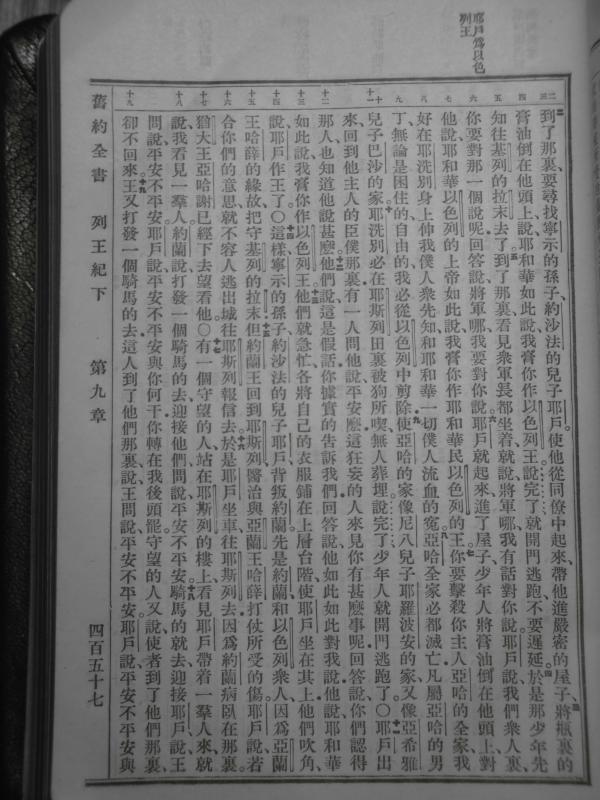 耶戶爲以色
列王
二三
四
五
六
七
八
九
十
十一
十二
十三
十四
十五
十六
十七
十八
十九
到了那裏要尋找寧示的孫子約沙法的兒子耶戶使他從同僚中起來帶他進嚴密的屋子將瓶裏的
膏油倒在他頭上說耶和華如此說我膏你作以色列王說完了就開門逃跑不要遲延於是那少年先
知往基列的拉末去了到了那裏看見衆軍長都坐着就說將軍哪我有話對你說耶戶說我們衆人裏
你要對那一個說呢回答說將軍哪我要對你說耶戶就起來進了屋子少年人將膏油倒在他頭上對
他說耶和華以色列的上帝如此說我膏你作耶和華民以色列的王你要擊殺你主人亞哈的全家我
好在耶洗別身上伸我僕人衆先知和耶和華一切僕人流血的寃亞哈全家必都滅亡凡屬亞哈的男
丁無論是困住的自由的我必從以色列中剪除使亞哈的家像尼八兒子耶羅波安的家又像亞希雅
兒子巴沙的家耶洗別必在耶斯列田裏被狗所喫無人葬埋說完了少年人就開門逃跑了〇耶戶出
來回到他主人的臣僕那裏有一人問他說平安麼這狂妄的人來見你有甚麼事呢回答說你們認得
那人也知道他說甚麼他們說這是假話你據實的告訴我們回答說他如此如此對我說他說耶和華
如此說我膏你作以色列王他們就急忙各將自己的衣服鋪在上層台階使耶戶坐在其上他們吹角
說耶戶作王了〇這樣寧示的孫子約沙法的兒子耶戶背叛約蘭先是約蘭和以色列衆人因爲亞蘭
王哈薛的緣故把守基列的拉末但約蘭王回到耶斯列醫治與亞蘭王哈薛打仗所受的傷耶戶說若
合你們的意思就不容人逃出城往耶斯列報信去於是耶戶坐車往耶斯列去因爲約蘭病臥在那裏
猶大王亞哈謝已經下去望看他〇有一個守望的人站在耶斯列的樓上看見耶戶帶着一羣人來就
說我看見一羣人約蘭說打發一個騎馬的去迎接他們問說平安不平安騎馬的就去迎接耶戶說王
問說平安不平安耶戶說平安不平安與你何干你轉在我後頭罷守望的人又說使者到了他們那裏
卻不回來王又打發一個騎馬的去這人到了他們那裏說王問說平安不平安耶戶說平安不平安與
舊約全書 列王紀下 第九章 四百五十七